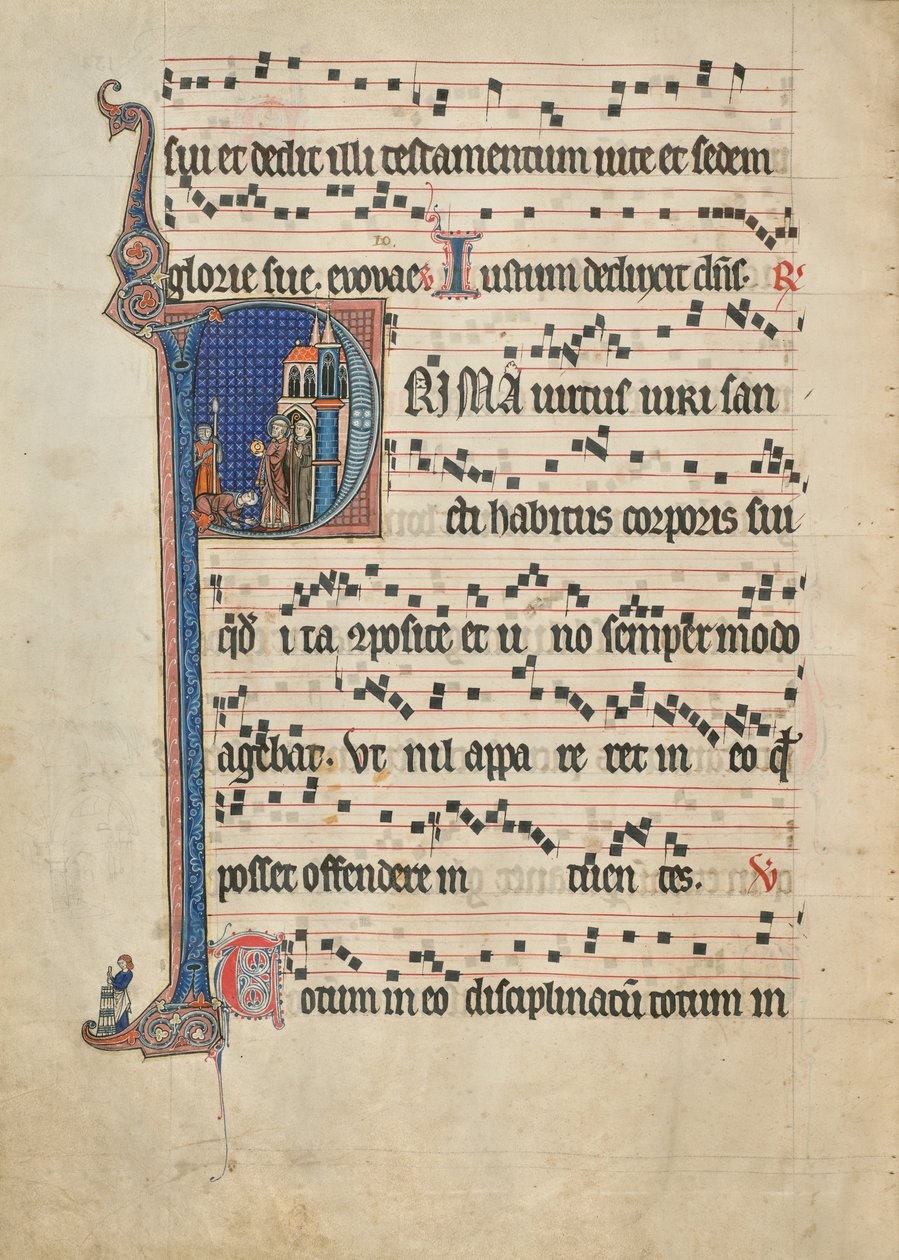 sui et dedit illi testamentum uite et sedem
glorie sue. evovae ℣ Iustum deduxit dn̄s. ℟
PRIMA uirtus uiri san
cti habitus corporis sui
q̇d̄ i ta ꝯposite et u no semper modo
agebat. Ut nil appa re ret in eo qđ
posset offendere in tuen tes. ℣
Totum in eo disciplinatū totum in